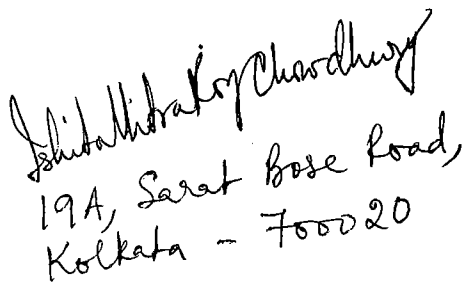 Ishita Mitra Roy Chowdhury
19A, Sarat Bose Road,
Kolkata - 700020